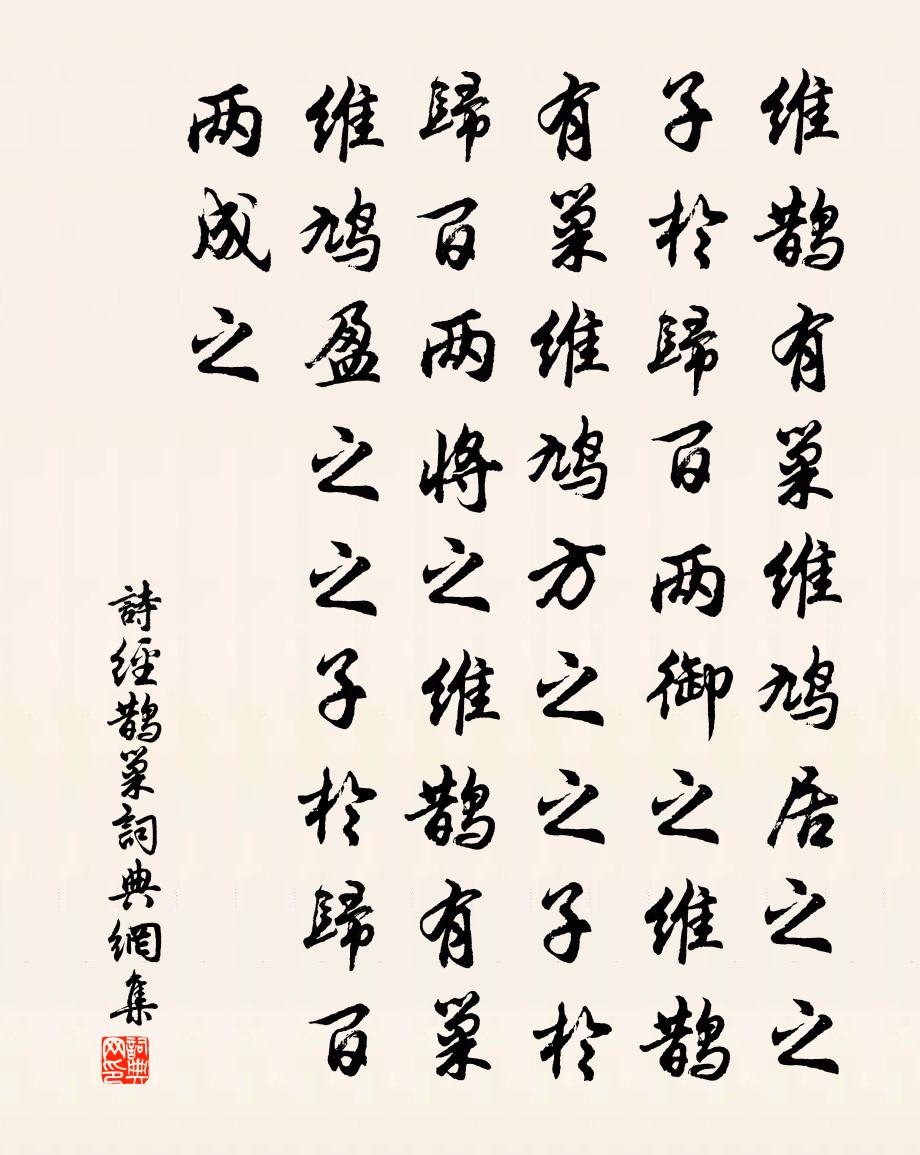 维鹊有巢维鸠居之之
子於歸百两御之维鹊
有巢维鸠方之之子於
歸百两将之维鹊有巢
维鸠盈之之子於歸百
两成之
詩經鹊巢詞典網集
詞典网印